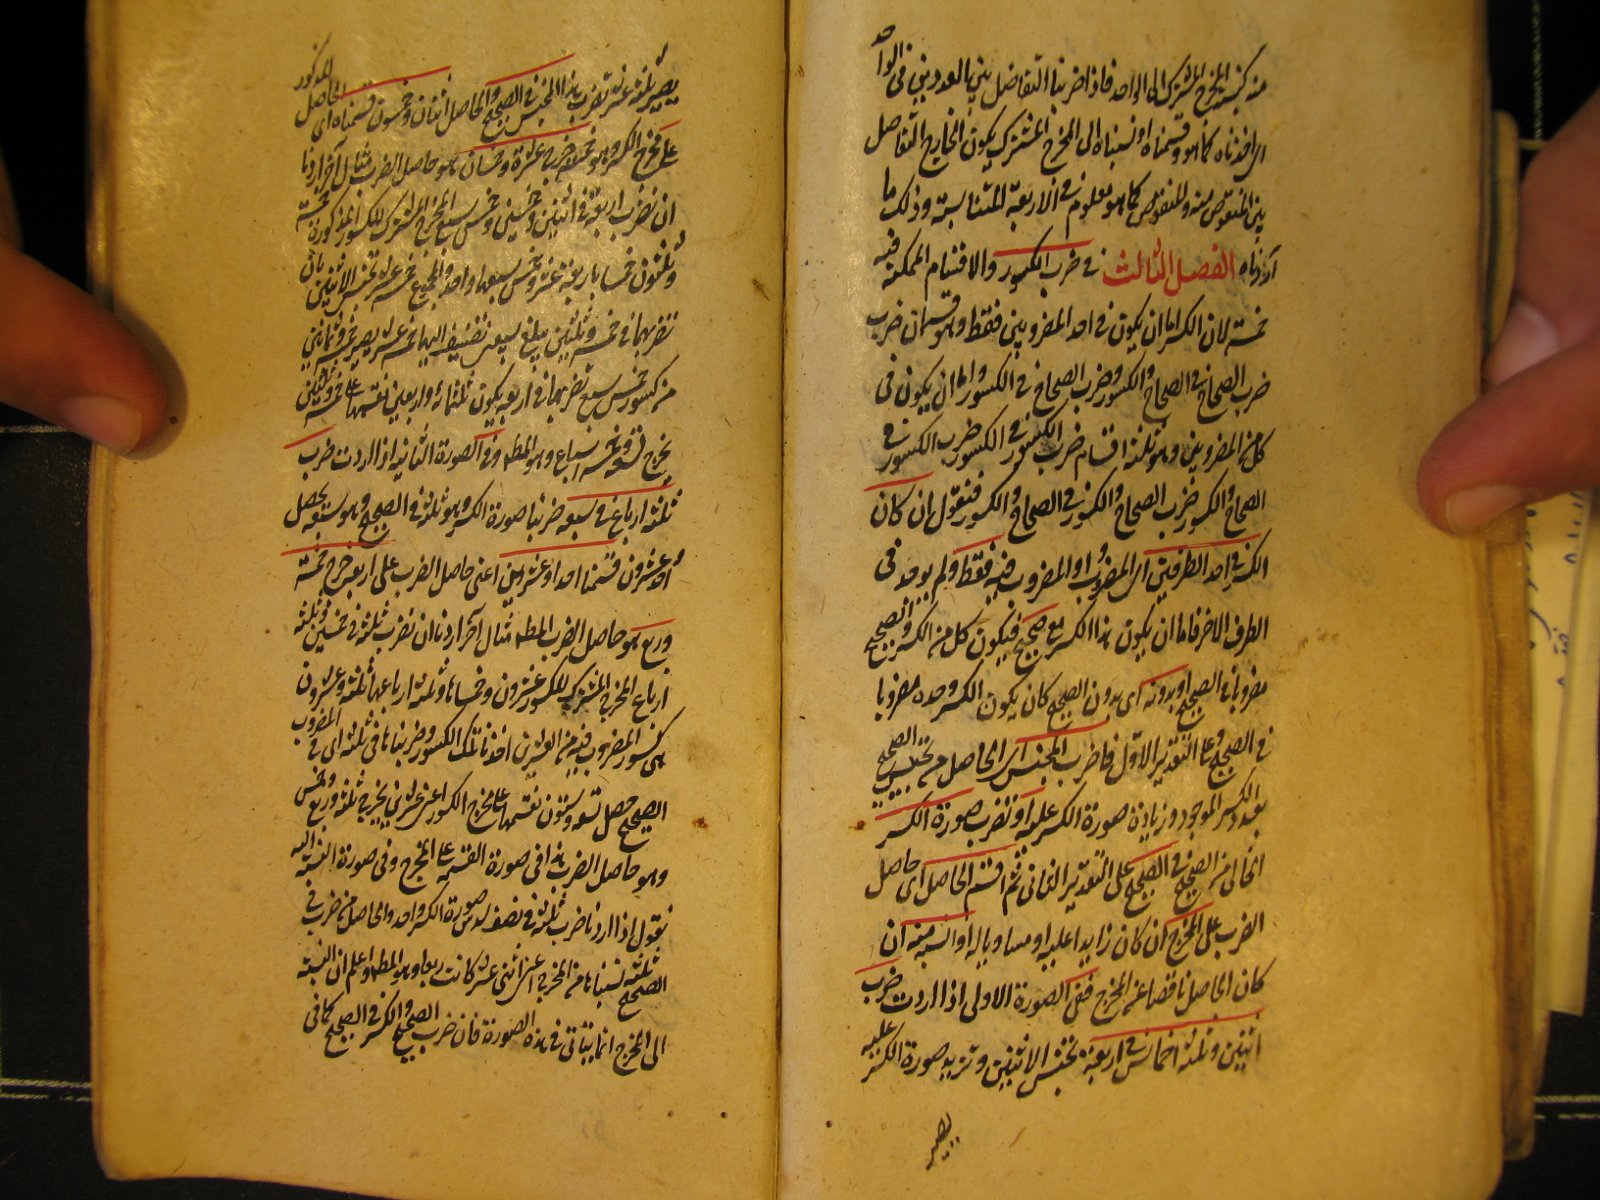 من كنسبة المخرج المشترك الى الواحد فاذا ضربنا التفاضل بين العددين فى الواحد
اى اخذناه كما هو وقسمناه او نسبناه الى المخرج المشترك يكون الخارج التفاضل
بين المنقوص منه والمنقوص كما هو معلوم فى الاربعة المتناسبة وذلك ما
اردناه الفصل الثالث فى ضرب الكسور والاقسام الممكنة فيه
خمسة لان الكسر اما ان يكون فى احد المضروبين فقط وهو قسمان ضرب
ضرب الصحاح فى الصحاح والكسور وضرب الصحاح فى الكسور واما ان يكون فى
كل من المضروبين وهو ثلثة اقسام ضرب الكسور فى الكسور ضرب الكسور فى
الصحاح والكسور ضرب الصحاح والكسور فى الصحاح والكسور فنقول ان كان
الكسر فى احد الطرفين اى المضروب او المضروب فيه فقط ولم يوجد فى
الطرف الاخر فاما ان يكون هذا الكسر مع صحيح فيكون كل من الكسر والصحيح
مضروبا فى الصحيح او بدونه اى بدون الصحيح كان يكون الكسر وحده مضروبا
فى الصحيح وعلى التقدير الاول فاضرب المجنس اى الحاصل من تجنيس الصحيح
بعدد الكسر الموجود وزيادة صورة الكسر عليه او تضرب صورة الكسر
الخالى من الصحيح فى الصحيح على التقدير الثانى ثم اقسم الحاصل اى حاصل
الضرب على المخرج ان كان زايدا عليه او مساويا له او انسبه منه ان
كان الحاصل ناقصا عن المخرج ففى الصورة الاولى اذا اردت ضرب
اثنين وثلثة اخماس فى اربعة تجنس الاثنين وتزيد صورة الكسر عليه
يصير
يصير ثلثة عشر تضرب هذا المجنس فى الصحيح والحاصل اثنان وخمسون قسمناه اى الحاصل المذكور
على مخرج الكسر وهو خمسة خرج عشرة وخمسان هو حاصل الضرب مثال آخر اردنا
ان نضرب اربعة فى اثنين وخمسين وخمس سبع المخرج المشترك للكسور المذكورة خمسة
وثلثون خمساها اربعة عشر وخمس سبعها واحد والمجموع خمسة عشر تجنس الاثنين بان
تضربهما فى خمسة وثلثين يبلغ سبعين تضيف اليها خمسة عشر يصير خمسة وثمانين
من كسور خمس سبع تضربها فى اربعة يكون ثلثمائة واربعين نقسمها على خمسة وثلثين
يخرج تسعة وخمسة اسباع وهو المط وفى الصورة الثانية اذا اردت ضرب
ثلثة ارباع فى سبعة ضربنا صورة الكسر وهو ثلثة فى الصحيح وهو سبعة يحصل
احد وعشرون قسمنا احدا وعشرين اعنى حاصل الضرب على اربعة خرج خمسة
وربع هو حاصل الضرب المط مثال آخر اردنا ان نضرب ثلثة فى خمسين وثلثة
ارباع المخرج المشترك للكسور عشرون وخمساها وثلثة ارباعها ثلثة وعشرون
هى كسور المضروب فيه من العشرين اخذنا تلك الكسور وضربناها فى ثلثة اى فى المضروب
الصحيح حصل تسعة وستون نقسمها على مخرج الكسور اعنى عشرين يخرج ثلثة وربع وخمس
وهو حاصل الضرب هذا فى صورة القسمة على المخرج وفى صورة النسبة اليه
نقول اذا اردنا ضرب ثلثة فى نصف صورة الكسر واحد والحاصل من ضرب فى
الصحيح ثلثة نسبناها من المخرج اعنى اثنى عشر كانت ربعا وهو المط واعلم ان النسبة
الى المخرج انما يتأتى فى هذه الصورة فان ضرب الصحيح والكسر فى الصحيح كما فى